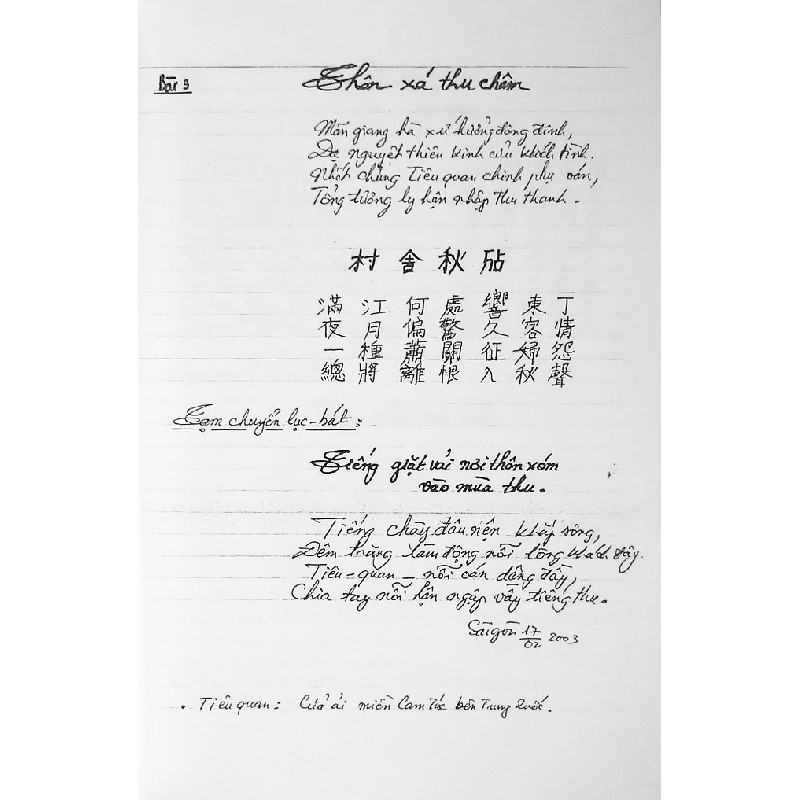 Bài 3
Thôn xá thu châm
Mãn giang hà xứ hưởng đông đinh,
Dạ nguyệt thiên kinh cửu khách tình.
Nhất chủng Tiêu quan chinh phụ oán,
Tổng tương ly hận nhập thu thanh.
村舍秋砧
滿江何處響東丁
夜月偏驚久客情
一種蕭關征婦怨
總將離恨入秋聲
Tạm chuyển lục-bát:
Tiếng giặt vải nơi thôn xóm
vào mùa thu.
Tiếng chày đâu rền khắp sông,
Đêm trăng làm động nỗi lòng khách đây.
Tiêu-quan - nỗi oán dâng đầy,
Chia tay nỗi hận ngập vây tiếng thu.
Sàigòn 17/02 2003
. Tiêu quan: Cửa ải miền Cam Túc bên Trung Quốc.